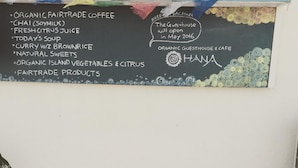 • ORGANIC FAIRTRADE COFFEE
• CHAI (SOYMILK)
• FRESH CITRUS JUICE
• TODAY'S SOUP
• CURRY WIZ BROWN RICE
• NATURAL SWEETS
• ORGANIC ISLAND VEGETABLES & CITRUS
• FAIRTRADE PRODUCTS
The Guesthouse
will open
in May 2016
ORGANIC GUESTHOUSE & CAFE
OHANA